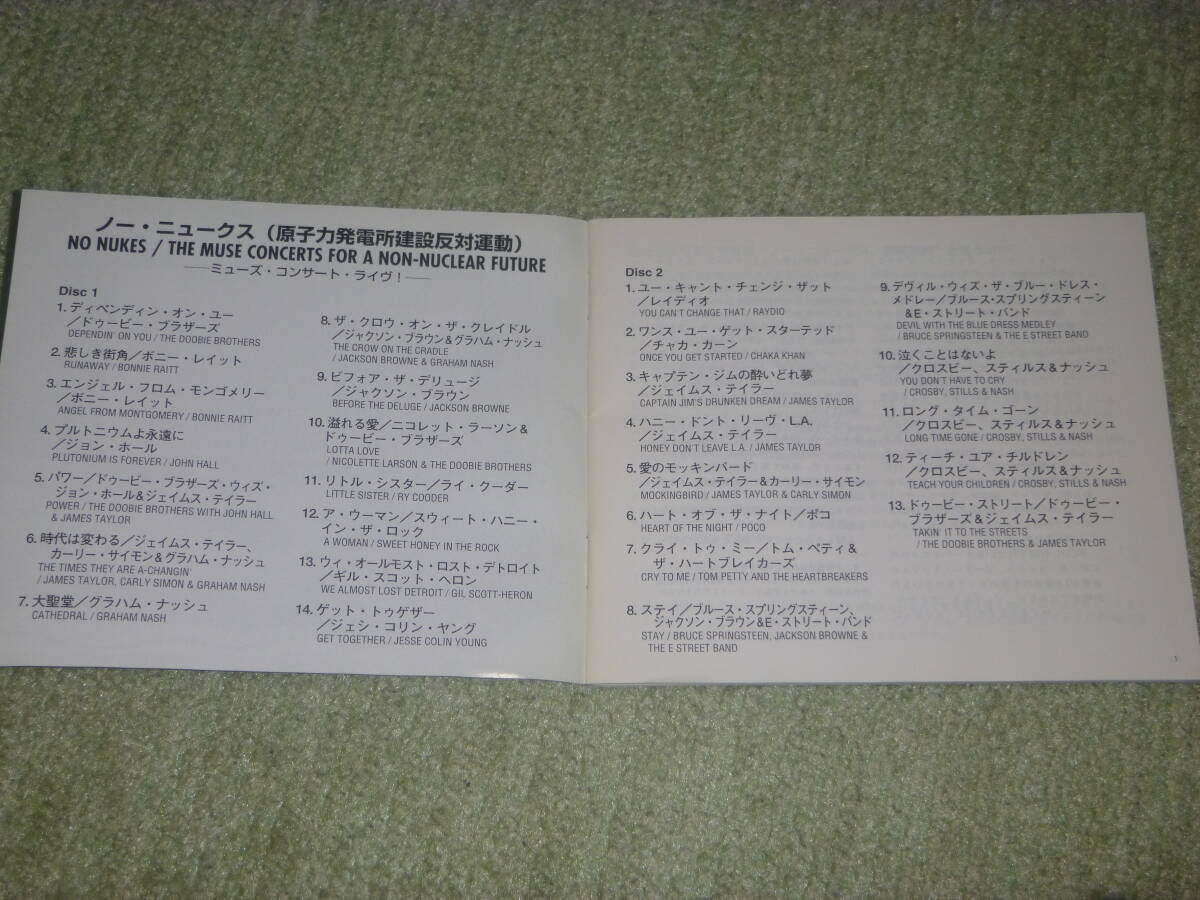 ノー・ニュークス（原子力発電所建設反対運動）
NO NUKES / THE MUSE CONCERTS FOR A NON-NUCLEAR FUTURE
――ミューズ・コンサート・ライヴ！――
Disc 1
1. ディペンディン・オン・ユー
／ドゥービー・ブラザーズ
DEPENDIN' ON YOU / THE DOOBIE BROTHERS
2. 悲しき街角／ボニー・レイット
RUNAWAY / BONNIE RAITT
3. エンジェル・フロム・モンゴメリー
／ボニー・レイット
ANGEL FROM MONTGOMERY / BONNIE RAITT
4. プルトニウムよ永遠に
／ジョン・ホール
PLUTONIUM IS FOREVER / JOHN HALL
5. パワー／ドゥービー・ブラザーズ・ウィズ・
ジョン・ホール＆ジェイムス・テイラー
POWER / THE DOOBIE BROTHERS WITH JOHN HALL
& JAMES TAYLOR
6. 時代は変わる／ジェイムス・テイラー、
カーリー・サイモン＆グラハム・ナッシュ
THE TIMES THEY ARE A-CHANGIN'
/ JAMES TAYLOR, CARLY SIMON & GRAHAM NASH
7. 大聖堂／グラハム・ナッシュ
CATHEDRAL / GRAHAM NASH
8. ザ・クロウ・オン・ザ・クレイドル
／ジャクソン・ブラウン＆グラハム・ナッシュ
THE CROW ON THE CRADLE
/ JACKSON BROWNE & GRAHAM NASH
9. ビフォア・ザ・デリュージ
／ジャクソン・ブラウン
BEFORE THE DELUGE / JACKSON BROWNE
10. 溢れる愛／ニコレット・ラーソン＆
ドゥービー・ブラザーズ
LOTTA LOVE
/ NICOLETTE LARSON & THE DOOBIE BROTHERS
11. リトル・シスター／ライ・クーダー
LITTLE SISTER / RY COODER
12. ア・ウーマン／スウィート・ハニー・
イン・ザ・ロック
A WOMAN / SWEET HONEY IN THE ROCK
13. ウィ・オールモスト・ロスト・デトロイト
／ギル・スコット・ヘロン
WE ALMOST LOST DETROIT / GIL SCOTT-HERON
14. ゲット・トゥゲザー
／ジェシ・コリン・ヤング
GET TOGETHER / JESSE COLIN YOUNG
Disc 2
1. ユー・キャント・チェンジ・ザット
／レイディオ
YOU CAN'T CHANGE THAT / RAYDIO
2. ワンス・ユー・ゲット・スターテッド
／チャカ・カーン
ONCE YOU GET STARTED / CHAKA KHAN
3. キャプテン・ジムの酔いどれ夢
／ジェイムス・テイラー
CAPTAIN JIM'S DRUNKEN DREAM / JAMES TAYLOR
4. ハニー・ドント・リーヴ・L.A.
／ジェイムス・テイラー
HONEY DON'T LEAVE L.A. / JAMES TAYLOR
5. 愛のモッキンバード
／ジェイムス・テイラー＆カーリー・サイモン
MOCKINGBIRD / JAMES TAYLOR & CARLY SIMON
6. ハート・オブ・ザ・ナイト／ポコ
HEART OF THE NIGHT / POCO
7. クライ・トゥ・ミー／トム・ペティ＆
ザ・ハートブレイカーズ
CRY TO ME / TOM PETTY AND THE HEARTBREAKERS
8. ステイ／ブルース・スプリングスティーン、
ジャクソン・ブラウン＆E・ストリート・バンド
STAY / BRUCE SPRINGSTEEN, JACKSON BROWNE &
THE E STREET BAND
9. デヴィル・ウィズ・ザ・ブルー・ドレス・
メドレー／ブルース・スプリングスティーン
＆E・ストリート・バンド
DEVIL WITH THE BLUE DRESS MEDLEY
/ BRUCE SPRINGSTEEN & THE E STREET BAND
10. 泣くことはないよ
／クロスビー、スティルス＆ナッシュ
YOU DON'T HAVE TO CRY
/ CROSBY, STILLS & NASH
11. ロング・タイム・ゴーン
／クロスビー、スティルス＆ナッシュ
LONG TIME GONE / CROSBY, STILLS & NASH
12. ティーチ・ユア・チルドレン
／クロスビー、スティルス＆ナッシュ
TEACH YOUR CHILDREN / CROSBY, STILLS & NASH
13. ドゥービー・ストリート／ドゥービー・
ブラザーズ＆ジェイムス・テイラー
TAKIN' IT TO THE STREETS
/ THE DOOBIE BROTHERS & JAMES TAYLOR
1